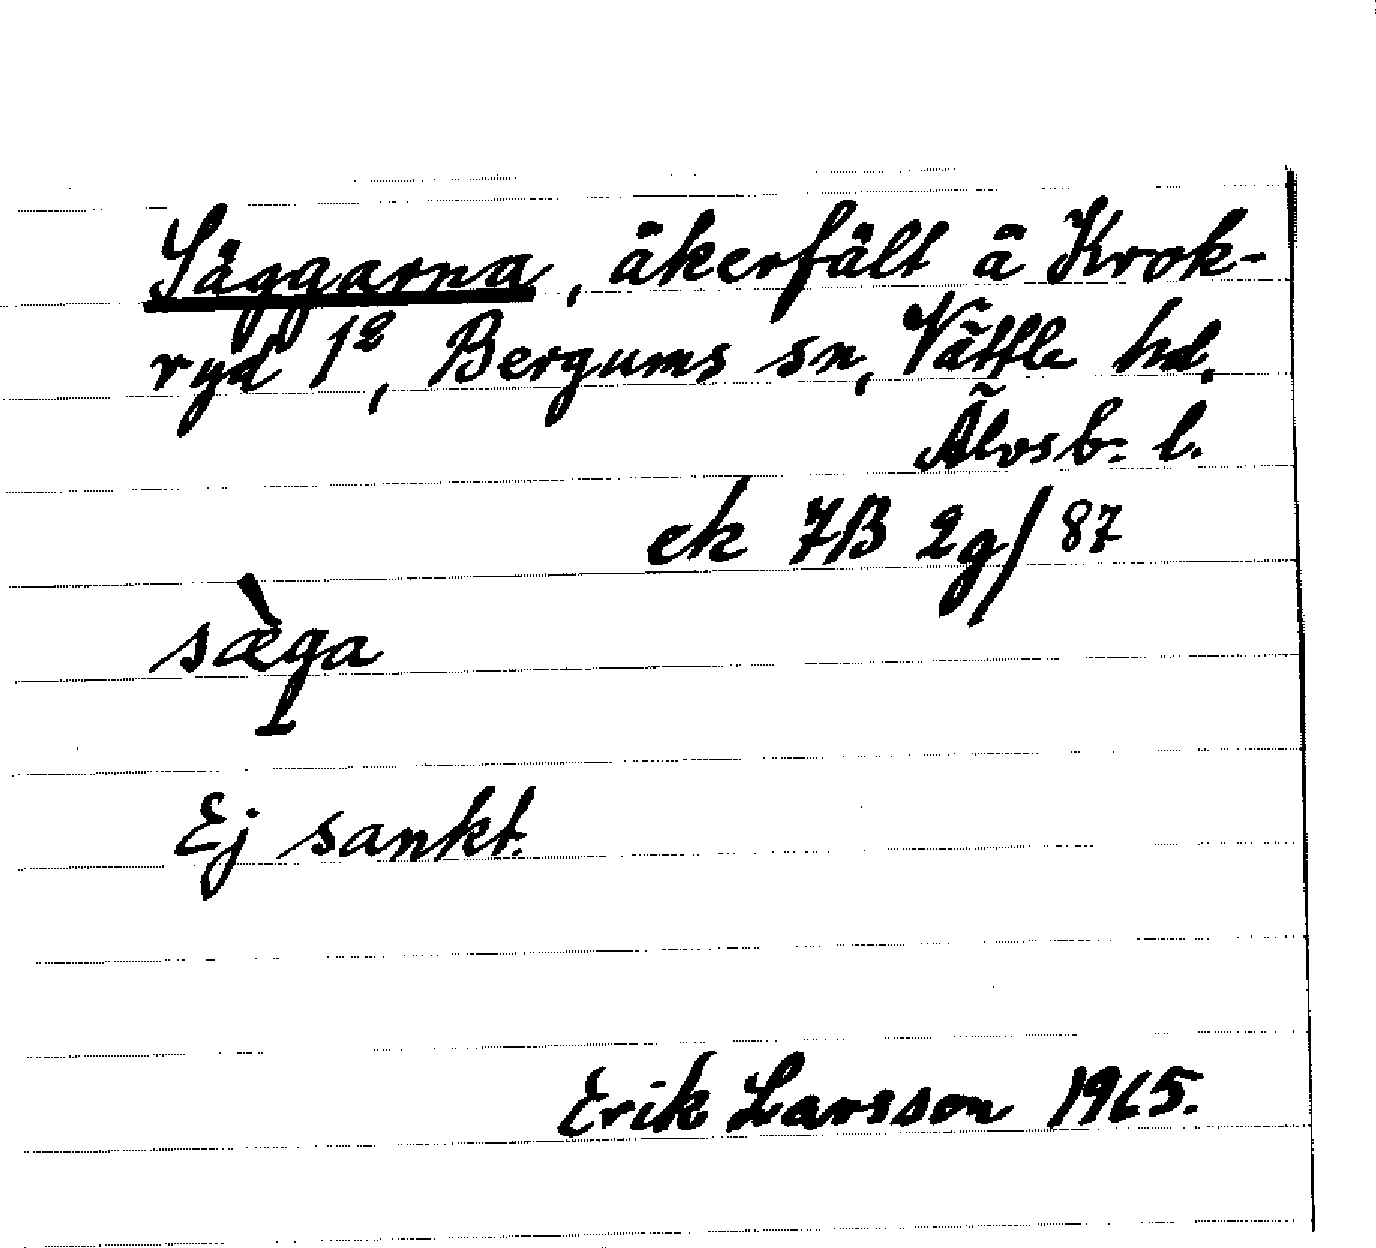 Säggarna, åkerfält å Krok-
ryd 1², Bergums sn, Vättle hd.
Älvsb. l.
ek 7B 2g/87
sæ̀ga
Ej sankt.
Erik Larsson 1965.